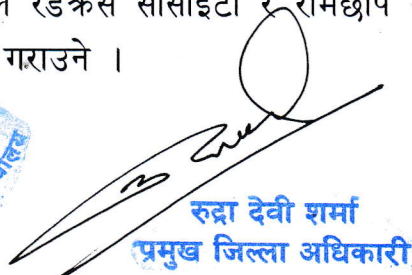 रेडक्रस सोसाइटी र रामेछाप
गराउने ।
रुद्रा देवी शर्मा
प्रमुख जिल्ला अधिकारी